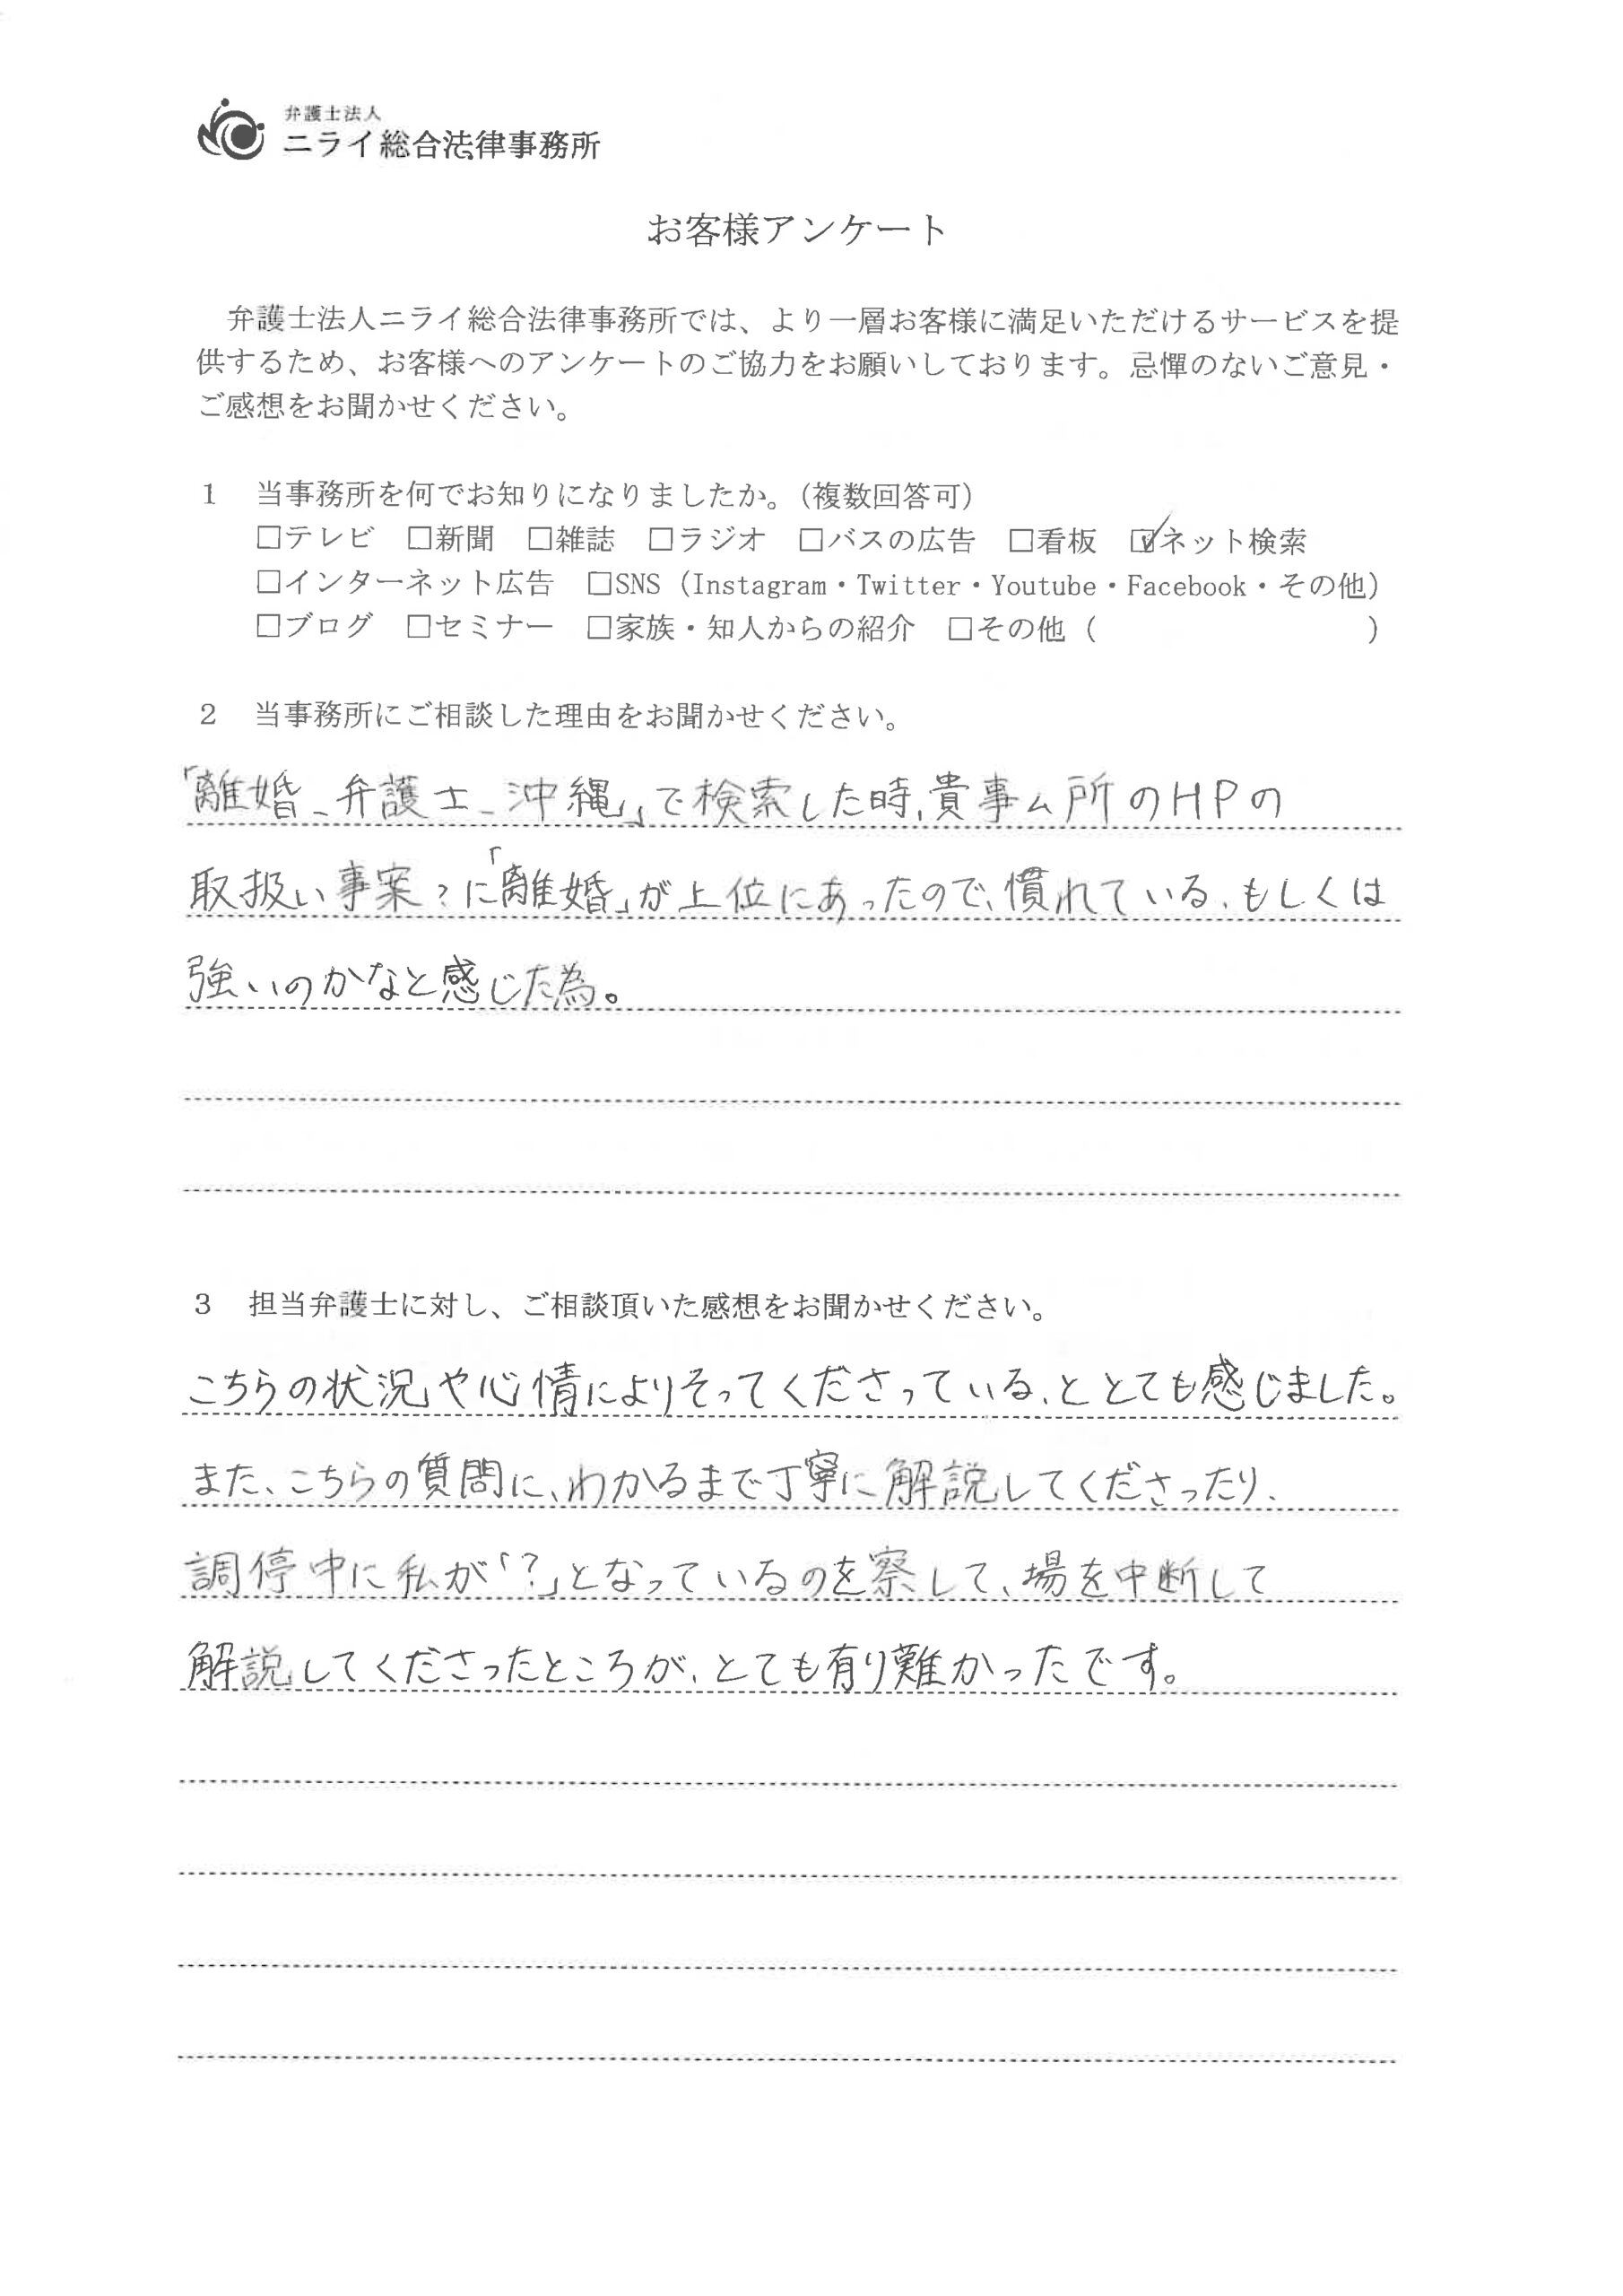 弁護士法人
ニライ総合法律事務所
お客様アンケート
弁護士法人ニライ総合法律事務所では、より一層お客様に満足いただけるサービスを提
供するため、お客様へのアンケートのご協力をお願いしております。忌憚のないご意見・
ご感想をお聞かせください。
1　当事務所を何でお知りになりましたか。（複数回答可）
□テレビ　□新聞　□雑誌　□ラジオ　□バスの広告　□看板　☑ネット検索
□インターネット広告　□SNS（Instagram・Twitter・Youtube・Facebook・その他）
□ブログ　□セミナー　□家族・知人からの紹介　□その他（　　　　　　　　　）
2　当事務所にご相談した理由をお聞かせください。
「離婚_弁護士_沖縄」で検索した時、貴事ム所のHPの
取扱い事案?に「離婚」が上位にあったので、慣れている、もしくは
強いのかなと感じた為。
3　担当弁護士に対し、ご相談頂いた感想をお聞かせください。
こちらの状況や心情によりそってくださっている、ととても感じました。
また、こちらの質問に、わかるまで丁寧に解説してくださったり、
調停中に私が「?」となっているのを察して、場を中断して
解説してくださったところが、とても有り難かったです。